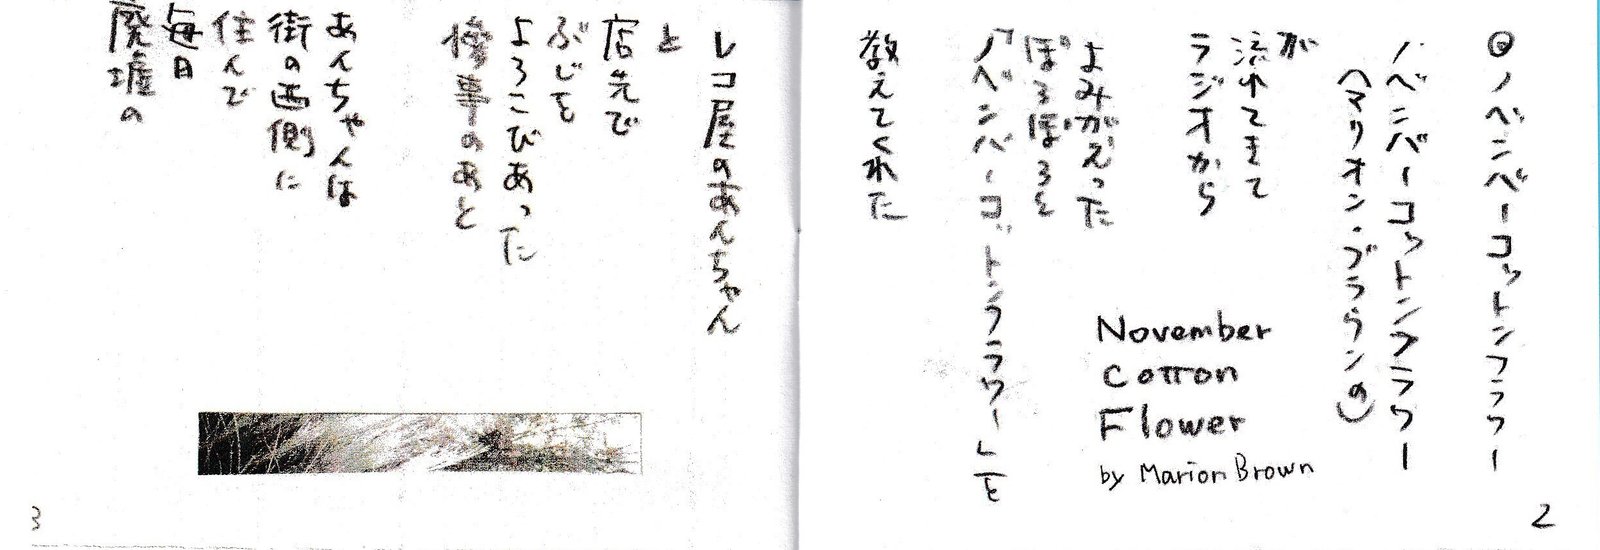 ◎ノベンバーコットンフラワー
ノベンバーコットンフラワー
(マリオン・ブラウンの)
が
流れてきて
ラジオから
よみがえった
ぽろぽろと
「ノベンバーコットンフラワー」を
教えてくれた
November
Cotton
Flower
by Marion Brown
2
レコ屋のあんちゃん
と
店先で
ぶじを
よろこびあった
惨事のあと
あんちゃんは
街の西側に
住んで
毎日
廃墟の
3